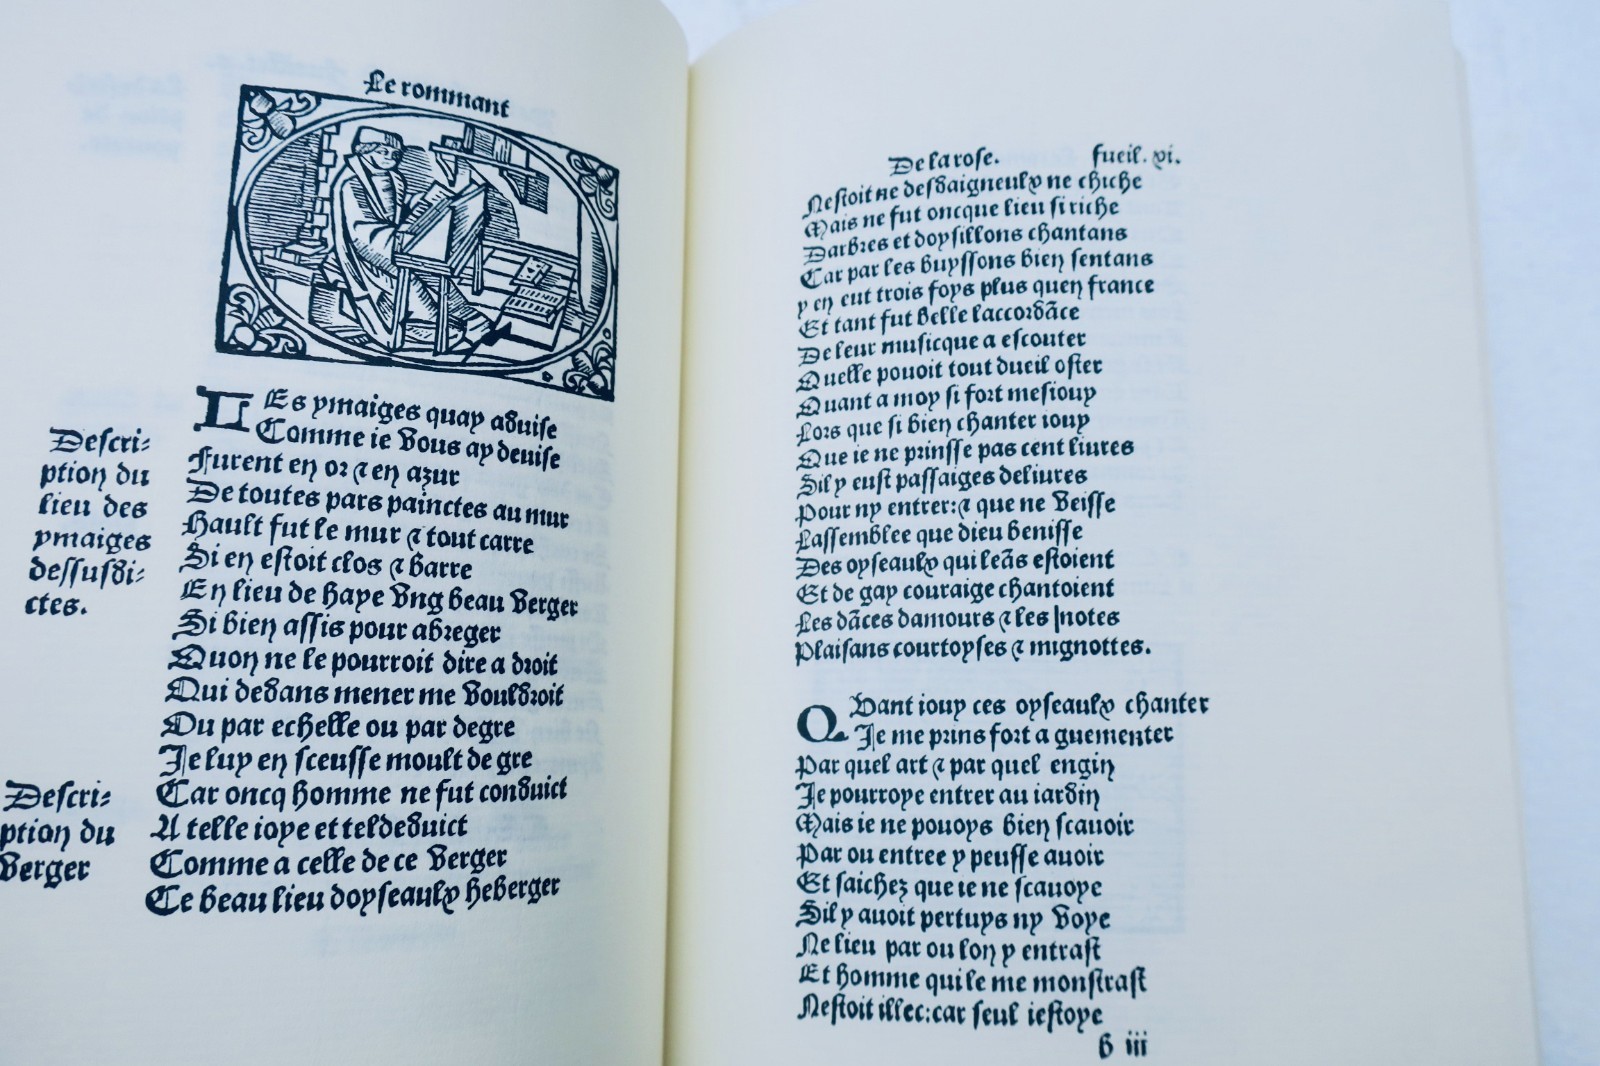 Le rommant
LEs ymaiges quay aduise
Comme ie vous ay deuise
Furent en or ⁊ en azur
De toutes pars painctes au mur
Hault fut le mur ⁊ tout carre
Si en estoit clos ⁊ barre
En lieu de haye vng beau verger
Si bien assis pour abreger
Quon ne le pourroit dire a droit
Qui dedans mener me vouldroit
Ou par echelle ou par degre
Je luy en sceusse moult de gre
Car oncq homme ne fut conduict
A telle ioye et tel deduict
Comme a celle de ce verger
Ce beau lieu doyseaulx heberger
Descri-
ption du
lieu des
ymaiges
dessusdi-
ctes.
Descri-
ption du
verger
De la rose. fueil. vi.
Nestoit ne desdaigneulx ne chiche
Mais ne fut oncque lieu si riche
Darbres et doysillons chantans
Car par les buyssons bien sentans
y en eut trois foys plus quen france
Et tant fut belle laccordãce
De leur musicque a escouter
Quelle pouoit tout dueil oster
Quant a moy si fort mesiouy
Lors que si bien chanter iouy
Que ie ne prinsse pas cent liures
Sil y eust passaiges deliures
Pour ny entrer:⁊ que ne veisse
Lassemblee que dieu benisse
Des oyseaulx qui leãs estoient
Et de gay couraige chantoient
Les dãces damours ⁊ les notes
Plaisans courtoyses ⁊ mignottes.
QVant iouy ces oyseaulx chanter
Je me prins fort a guementer
Par quel art ⁊ par quel engin
Je pourroye entrer au iardin
Mais ie ne pouoys bien scauoir
Par ou entree y peusse auoir
Et saichez que ie ne scauoye
Sil y auoit pertuys ny voye
Ne lieu par ou lon y entrast
Et homme qui le me monstrast
Nestoit illec:car seul iestoye
b iii